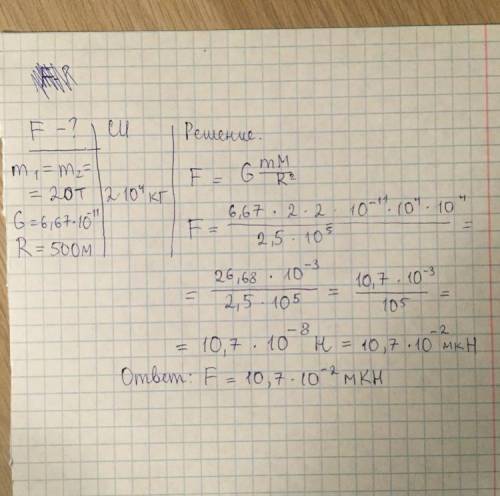 F - ? СИ Решение.
m₁ = m₂ =
= 20т 2·10⁴ кг
G = 6,67·10⁻¹¹
R = 500м
F = G mM / R²
F = 6,67 · 2 · 2 · 10⁻¹¹ · 10⁴ · 10⁴ / 2,5 · 10⁵ =
= 26,68 · 10⁻³ / 2,5 · 10⁵ = 10,7 · 10⁻³ / 10⁵ =
= 10,7 · 10⁻⁸ Н = 10,7 · 10⁻² мкН
Ответ: F = 10,7·10⁻² мкН